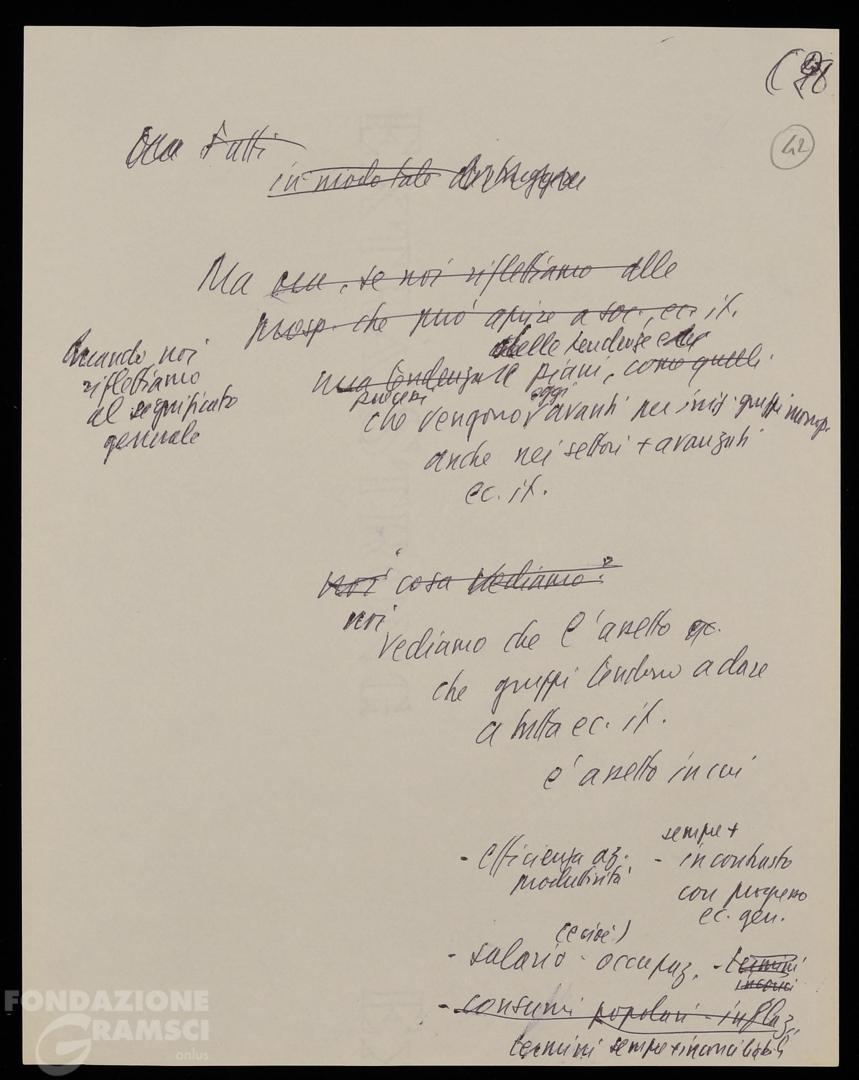 42
Ora tutti
in modo tale
Ma ora, se noi riflettiamo alle
prosp. che può aprire a soc., ec. it.
Quando noi
riflettiamo
al significato
generale
delle tendenze e de
una tendenza piani, come quelli
oggi
che vengono avanti per iniz. gruppi monop.
anche nei settori + avanzati
ec. it.
noi cosa vediamo?
noi
vediamo che l'assetto
che gruppi tendono a dare
a tutta ec. it.
è assetto in cui
- efficienza az. - sempre +
produttività in contrasto
con progresso
ec. gen.
(e cioè!)
- salario - occupaz. - termini
- consumi popolari - inflaz.
termini sempre + inconciliabili
FONDAZIONE
GRAMSCI
onlus